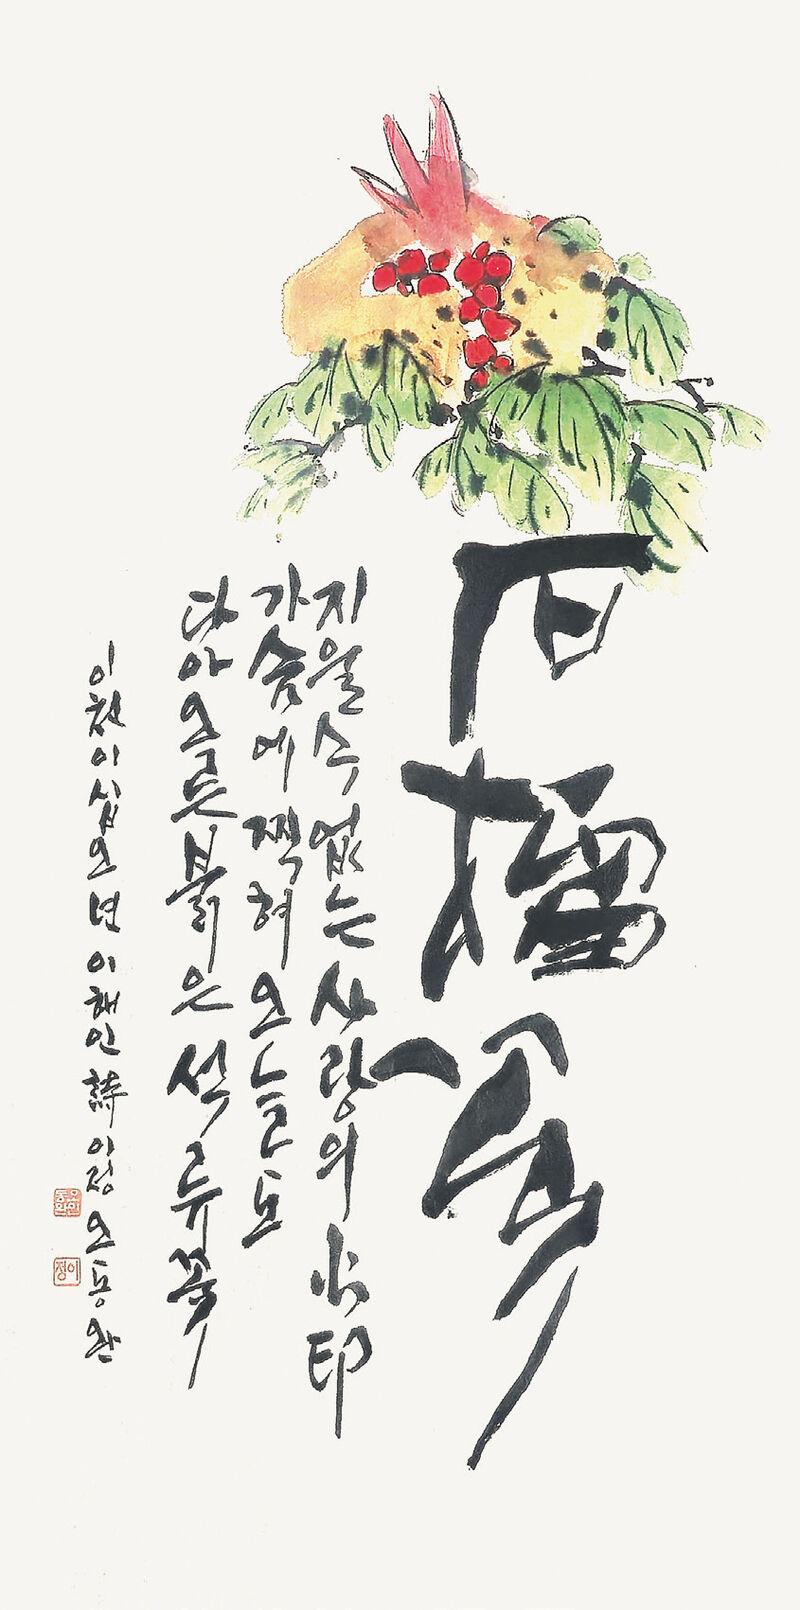 石榴꽃
지울수 없는 사랑의 火印
가슴에 찍혀 오늘도
달아오른 붉은 석류꽃
이천이십오년 이해인 詩 이정
이정